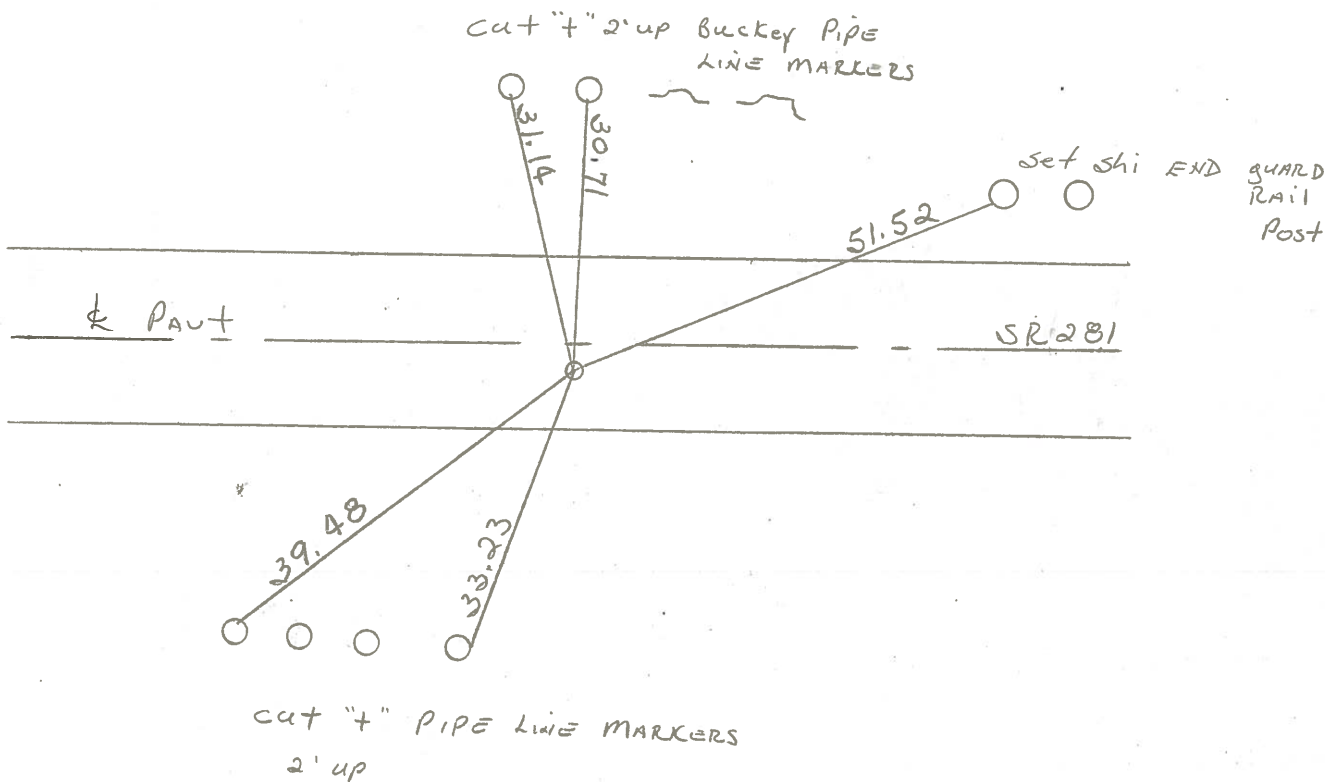 cut "+" 2' up Buckey PIPE
LINE MARKERS
31.14
30.71
set shi END GUARD
RAil
Post
51.52
℄ PAvt
SR 281
39.48
33.23
cut "+" PIPE LINE MARKERS
2' up